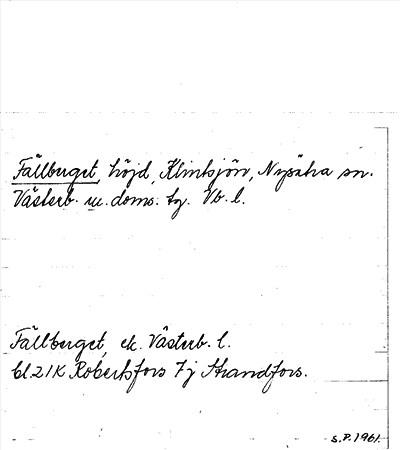 Fällberget, höjd, Klintsjön, Nysätra sn.
Västerb. m. doms. tg. Vb. l.
Fällberget, ek. Västerb. l.
bl. 21K Robertsfors 7j Strandfors.
S.P. 1961.